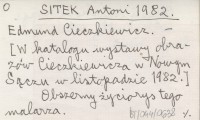 SITEK Antoni 1982.
Edmund Cieczkiewicz. —
[W katalogu wystawy obra-
zów Cieczkiewicza w Nowym
Sączu w listopadzie 1982.]
Obszerny życiorys tego
malarza.